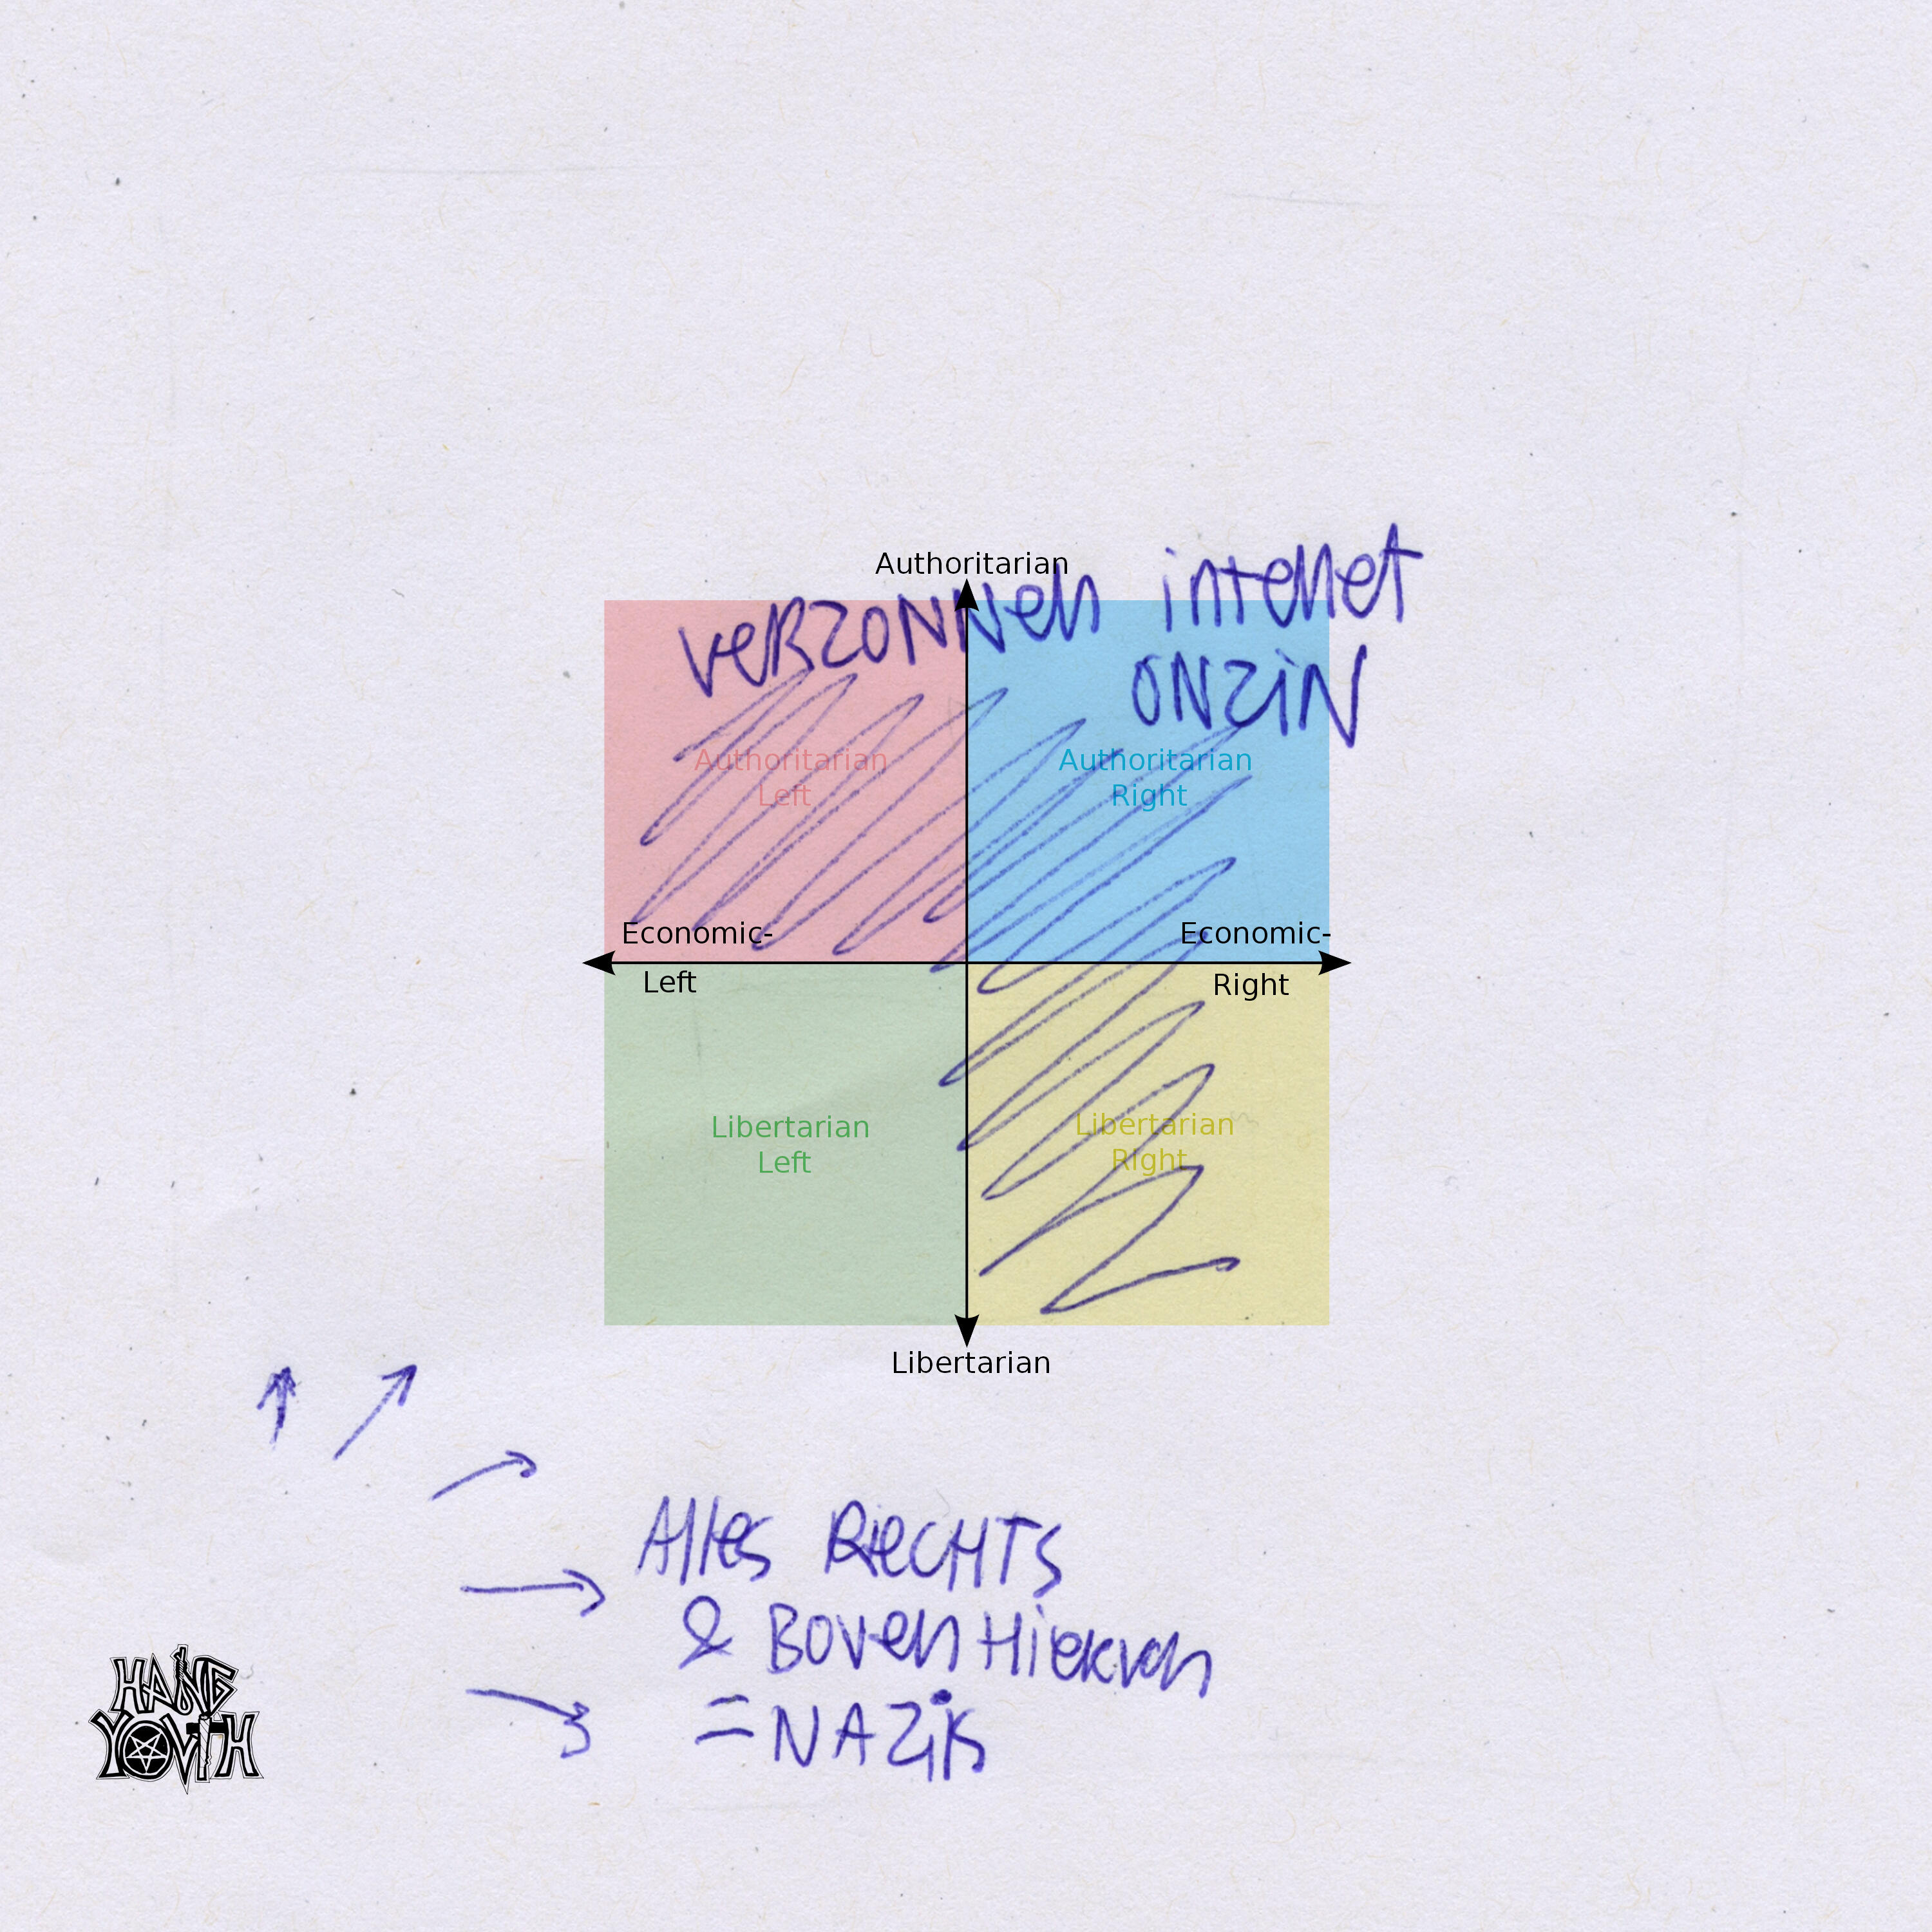 Authoritarian
verzonnen internet
onzin
Authoritarian
Left
Authoritarian
Right
Economic-
Left
Economic-
Right
Libertarian
Left
Libertarian
Right
Libertarian
Alles RECHTS
& Boven Hiervan
= NAZiS
HANG
YOUTH